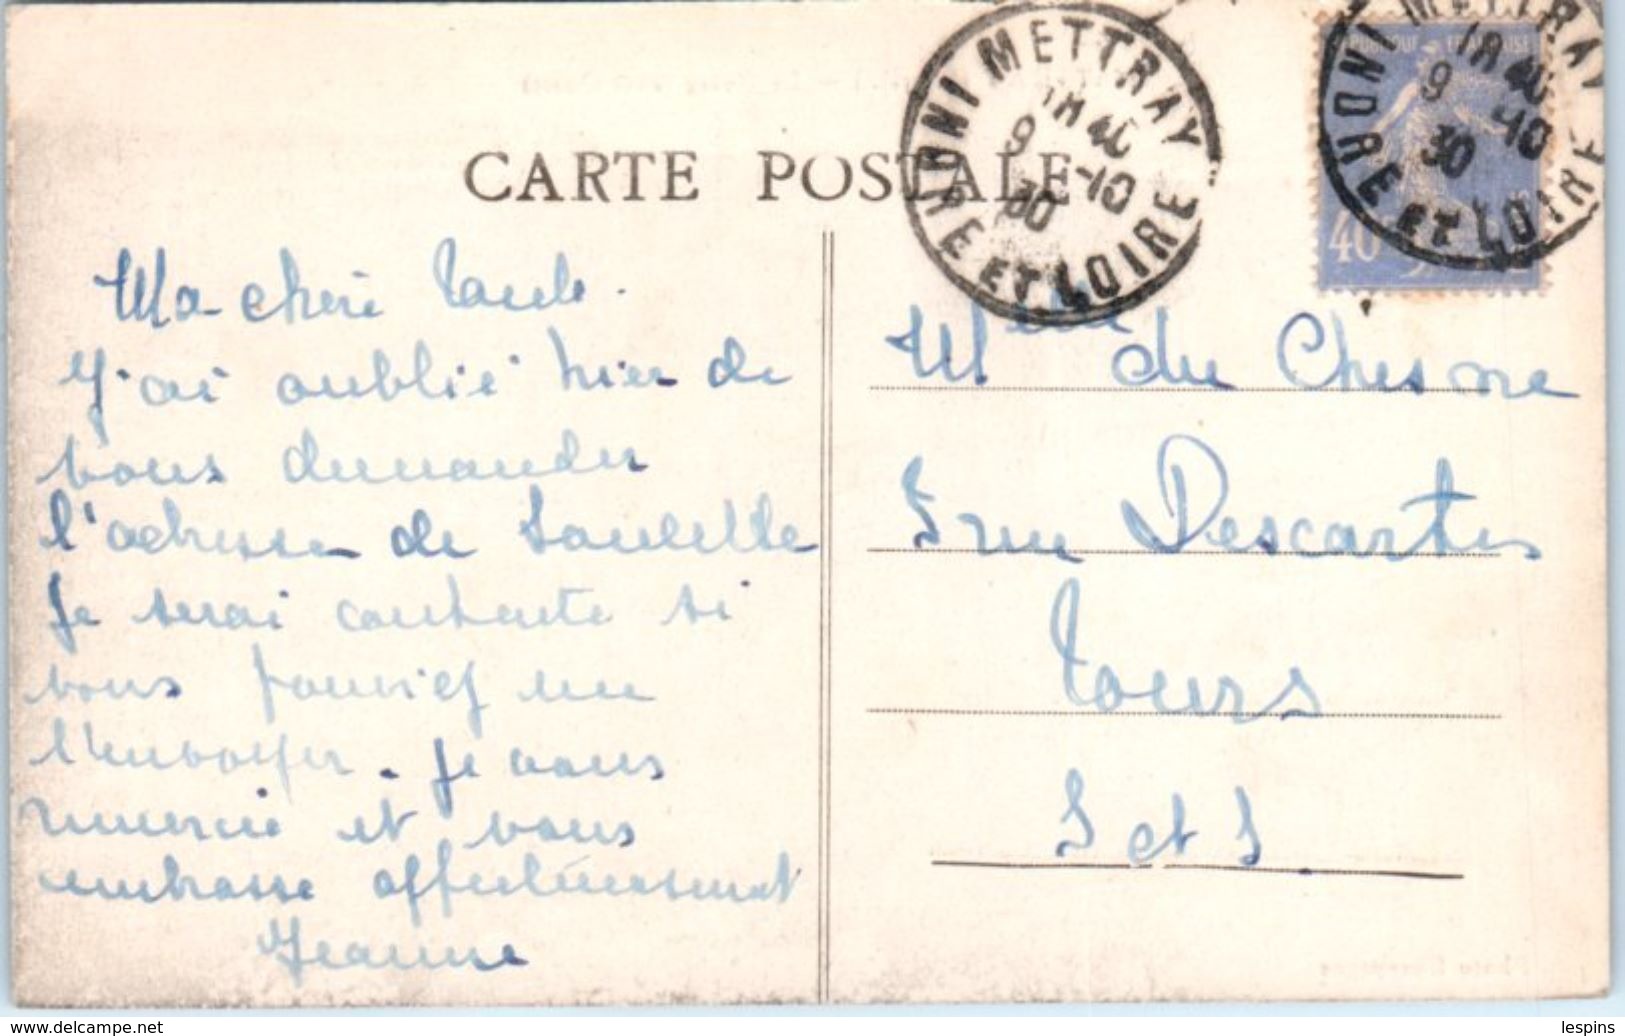 CARTE POSTALE
Ma chère tante.
J'ai oublié hier de
vous demander
l'adresse de
Je serai contente si
vous pouviez me
l'envoyer. Je vous
remercie et vous
embrasse affectueusement
Jeanne
METTRAY
18 40
9 -10
30
INDRE ET LOIRE
REPUBLIQUE FRANCAISE
METTRAY
18 40
9 -10
30
INDRE ET LOIRE
40
Mlle du Chesne
5 rue Descartes
Tours
I et L
www.delcampe.net
lespins